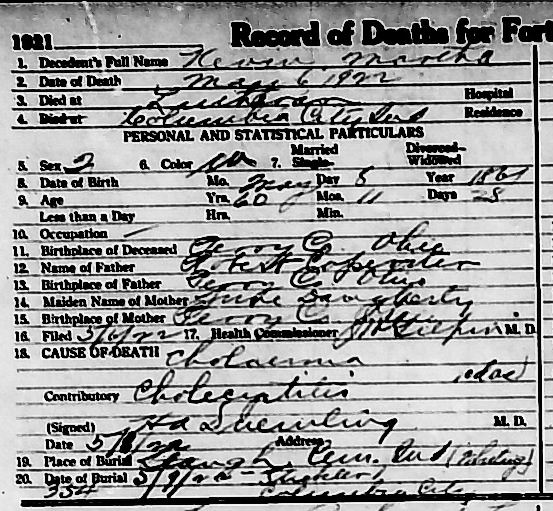 1921 Record of Deaths for Fort
1. Decedent's Full Name Martha
2. Date of Death May 6 1922
3. Died at Lutheran Hospital
4. Died at Columbia City Ind Residence
PERSONAL AND STATISTICAL PARTICULARS
5. Sex 6. Color W 7. Married Single Divorced Widowed
8. Date of Birth Mo. May Day 8 Year 1861
9. Age Yrs. 60 Mos. 11 Days 28
Less than a Day Hrs. Min.
10. Occupation
11. Birthplace of Deceased Perry Co. Ohio
12. Name of Father Robt H Carpenter
13. Birthplace of Father Perry Co. Ohio
14. Maiden Name of Mother Daugherty
15. Birthplace of Mother Perry Co.
16. Filed 5/6/22 17. Health Commissioner Gilpin M. D.
18. CAUSE OF DEATH Cholaemia
Contributory Cholecystitis
(Signed) M. D.
Date 5/8/22 Address
19. Place of Burial Cem. Ind
20. Date of Burial 5/9/22
334 Columbia City